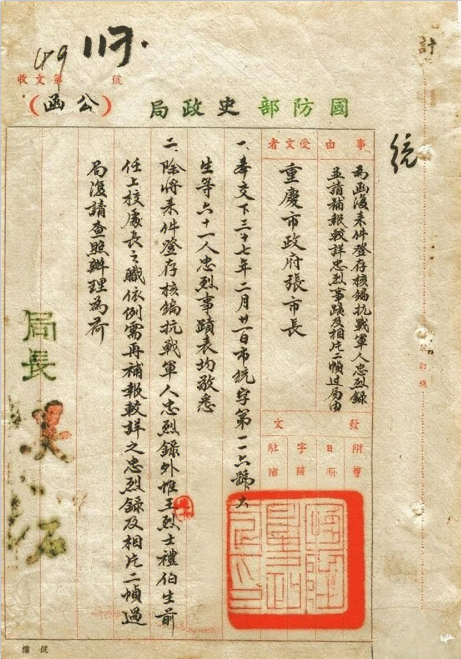 113.
收文第49號
國防部史政局(公函)
計
統
事由
為函復來件登存核編抗戰軍人忠烈錄
並請補報較詳忠烈事蹟及相片二幀過局由
受文者
重慶市政府張市長
發文
附件
日期
字號
駐地
一、奉交下三十七年二月廿一日市統字第一一六號大
生等六十一人忠烈事蹟表均敬悉
二、除將來件登存核編抗戰軍人忠烈錄外惟王烈士禮伯生前
任上校處長之職依例需再補報較詳之忠烈錄及相片二幀過
局復請查照辦理為荷
局長吳石